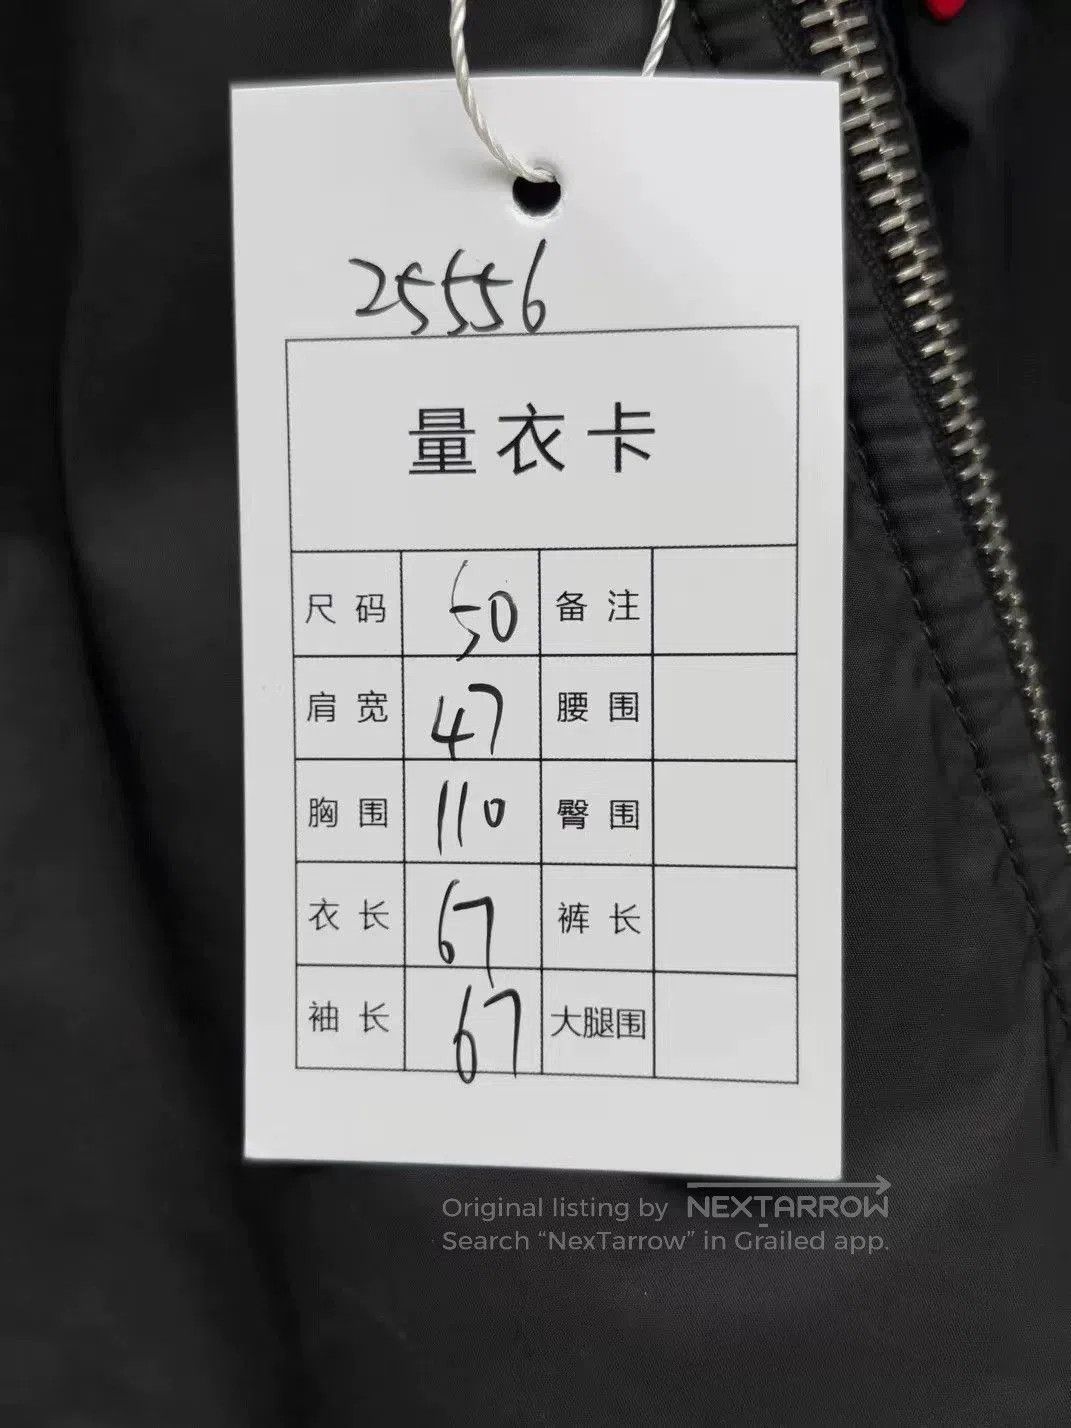 25556
量衣卡
尺码 50 备注
肩宽 47 腰围
胸围 110 臀围
衣长 67 裤长
袖长 67 大腿围
Original listing by NEXTARROW
Search “NexTarrow” in Grailed app.